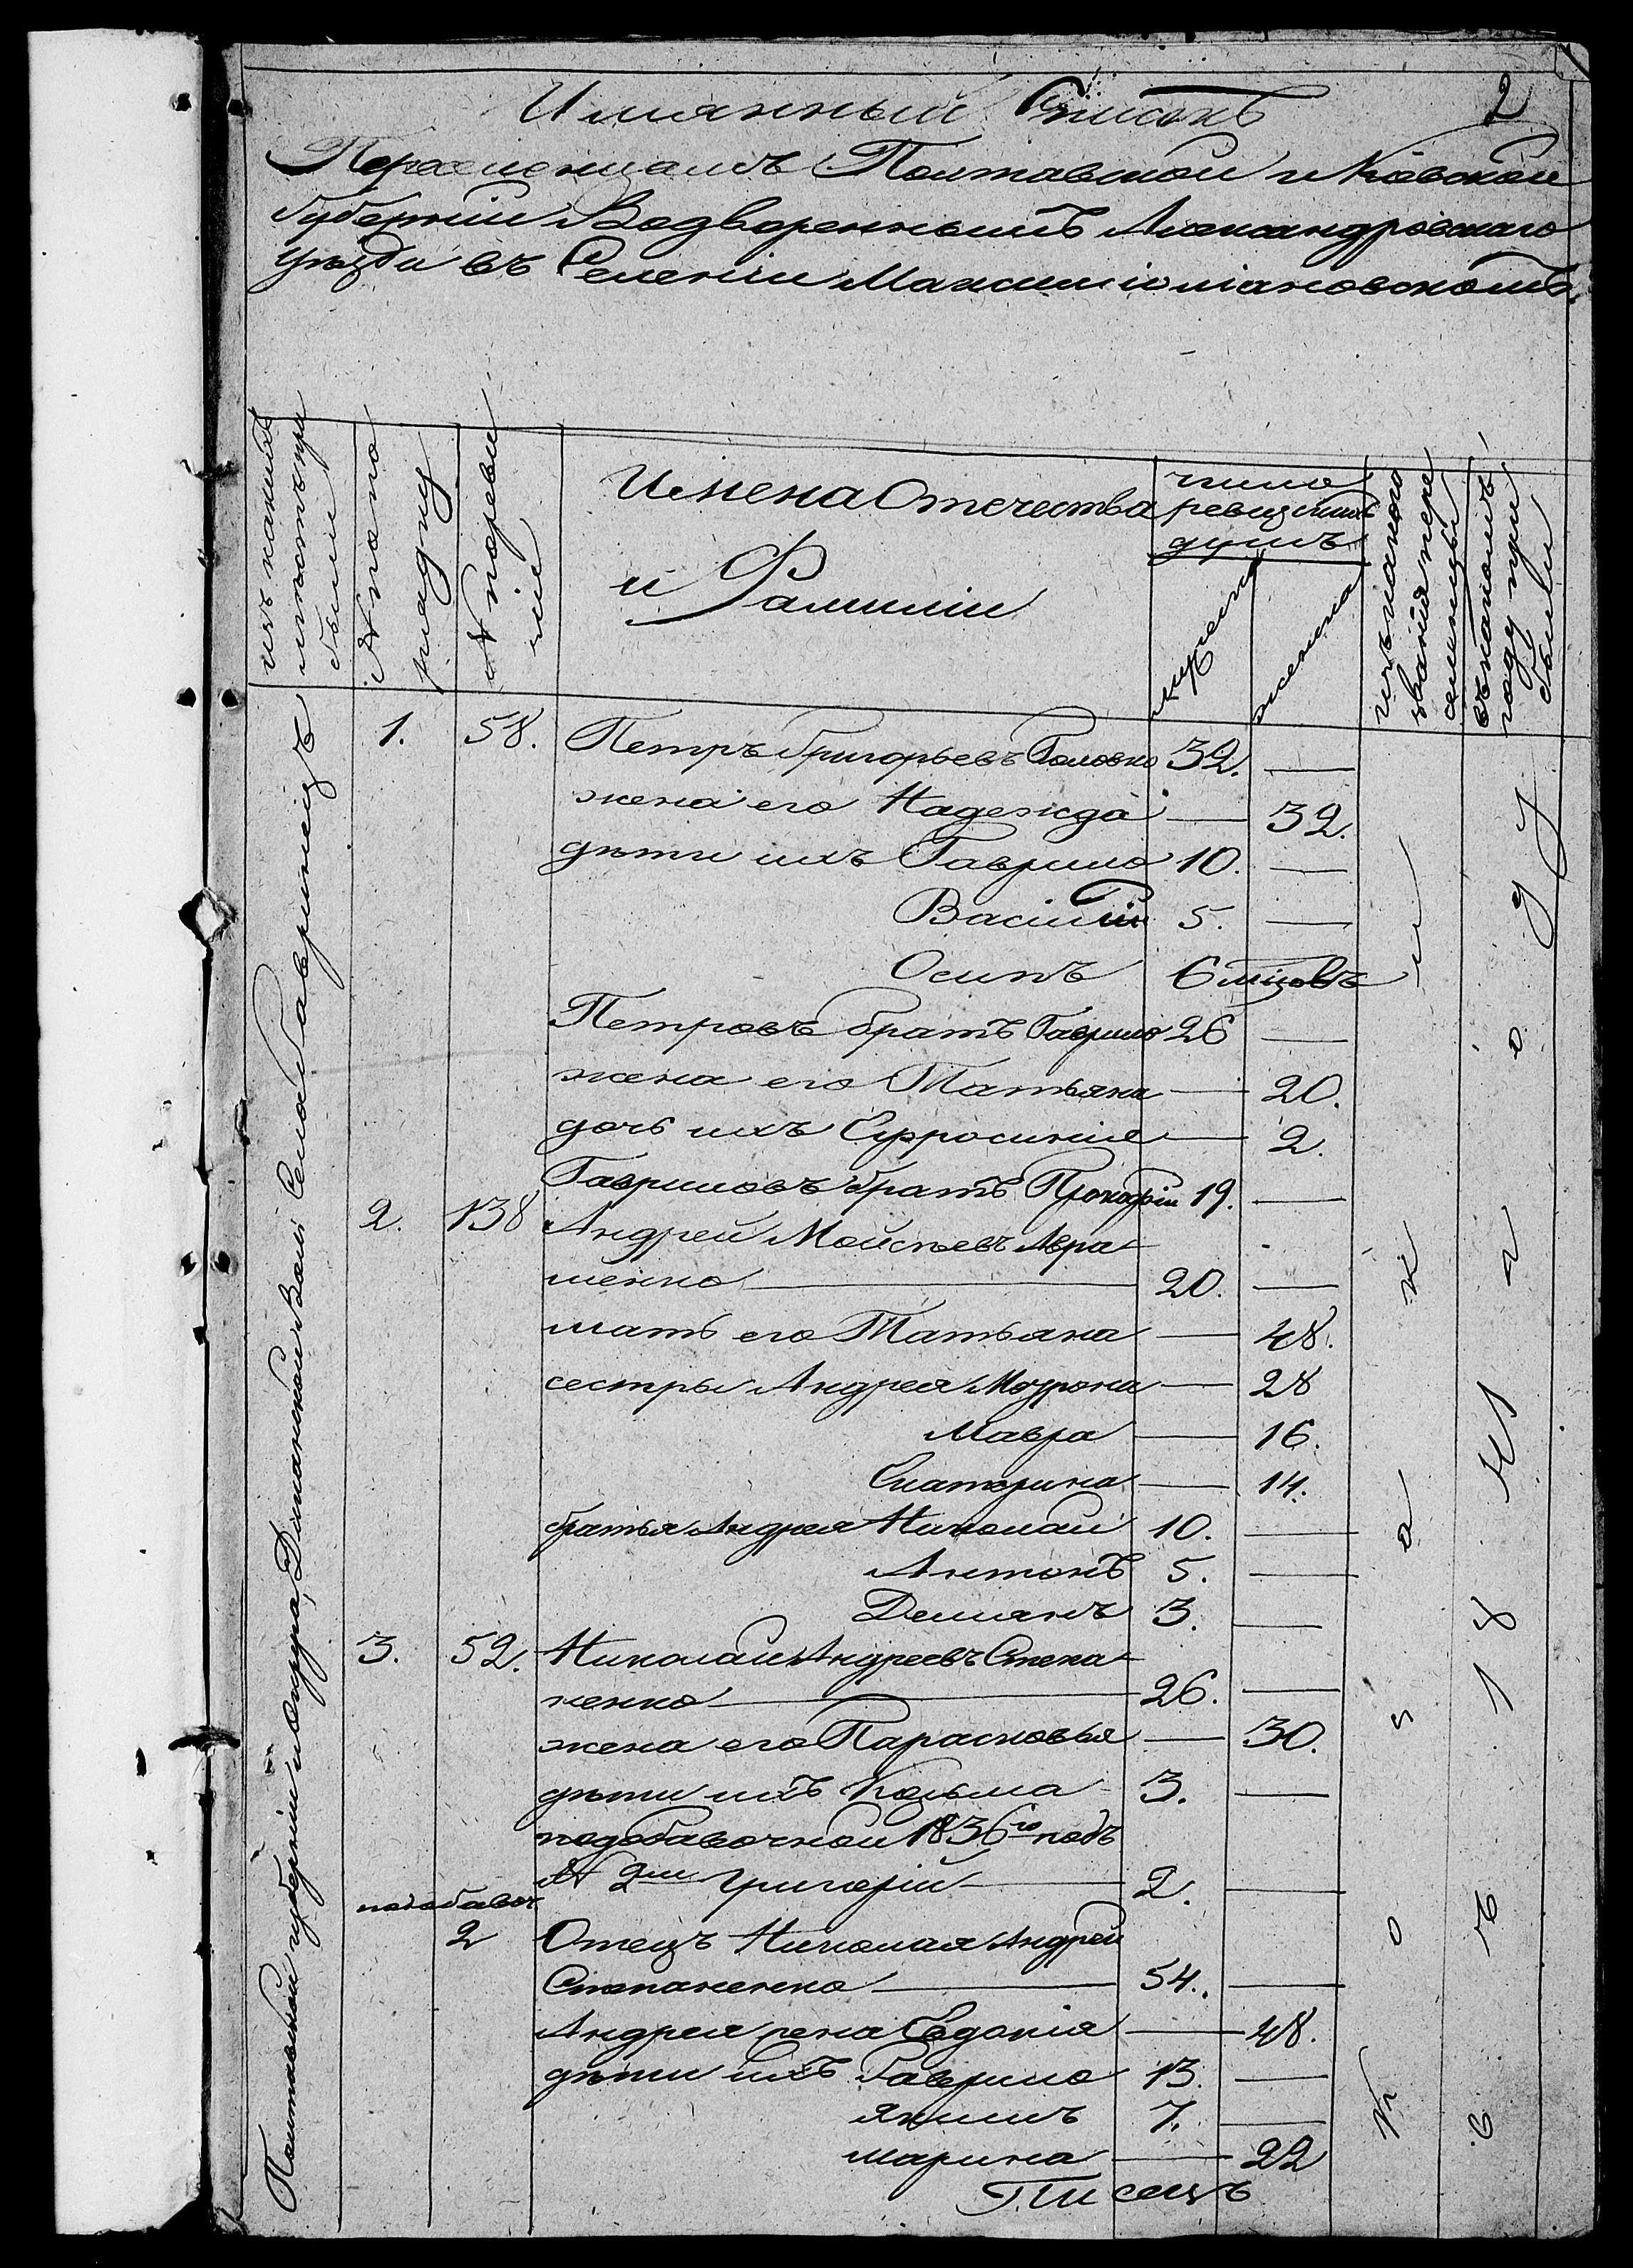 2
Имянный Списокъ
Переселенцамъ Полтавской и Кіевской
Губерніи Водвореннымъ Александровскаго
Уѣзда въ Селеніи Максимиліановскомъ.
изъ какихъ мѣстъ прибыли
№ по ряду
№ по ревизіи
Имена Отечества и Фамиліи
число ревизскихъ душъ
мужеска
женска
изъ какого званія переселенцы
въ какомъ году прибыли
Полтавской губерніи и Онуфра, Диканской Вол. Села Гавринецъ
Козаки
въ 1841 году
1. 58. Петръ Григорьевъ Головко 32. —
жена его Надежда — 32.
дѣти ихъ Гаврило 10. —
Василій 5. —
Осипъ 6 мѣцовъ
Петровъ братъ Гаврило 26 —
жена его Татьяна — 20.
дочь ихъ Евфросинія — 2.
Гавриловъ братъ Прокофій 19. —
2. 138 Андрей Мойсѣевъ Авра-
менко 20. —
мать его Татьяна — 48.
сестры Андрея Мотрона — 28
Мавра — 16.
Екатерина — 14.
братья Андрея Николай 10. —
Антонъ 5. —
Демянъ 3. —
3. 52. Николай Андреевъ Степа-
ненко 26. —
жена его Парасковья — 30.
дѣти ихъ Козьма 3. —
подобавочной 1836го подъ
№ 2ми Григорій 2. —
подобавоч.
2 Отецъ Николая Андрей
Степаненко 54. —
Андрея жена Евдокія — 48.
дѣти ихъ Гаврило 13. —
Якимъ 7. —
Марина — 22
Писецъ